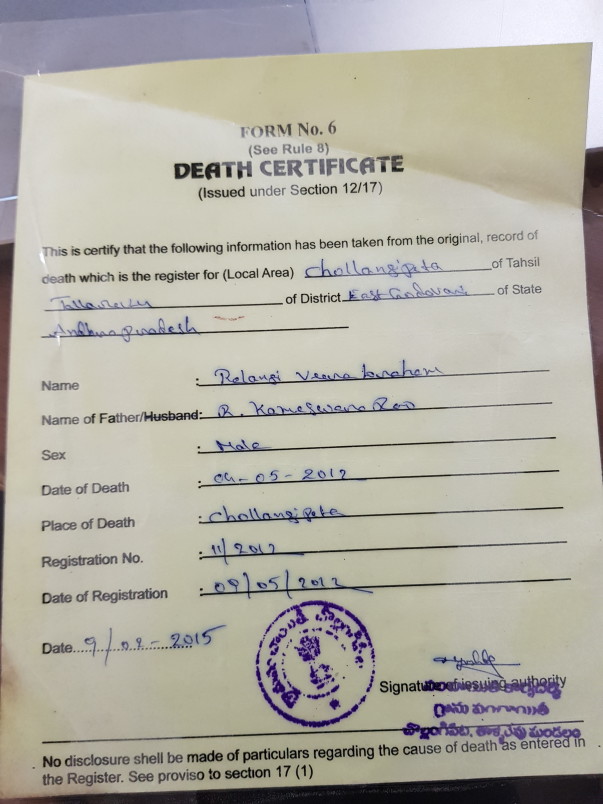 FORM No. 6
(See Rule 8)
DEATH CERTIFICATE
(Issued under Section 12/17)
This is certify that the following information has been taken from the original, record of
death which is the register for (Local Area) Chollangipeta of Tahsil
Tallarevu of District East Godavari of State
Andhra pradesh
Name : Relangi Veerabraham
Name of Father/Husband: R. Kameswara Rao
Sex : Male
Date of Death : 04-05-2012
Place of Death : Chollangipeta
Registration No. : 11/2012
Date of Registration : 09/05/2012
Date 9/02-2015
Signature of issuing authority
గ్రామ పంచాయితి
చొల్లంగిపేట, తాళ్ళరేవు మండలం
No disclosure shall be made of particulars regarding the cause of death as entered in
the Register. See proviso to section 17 (1)